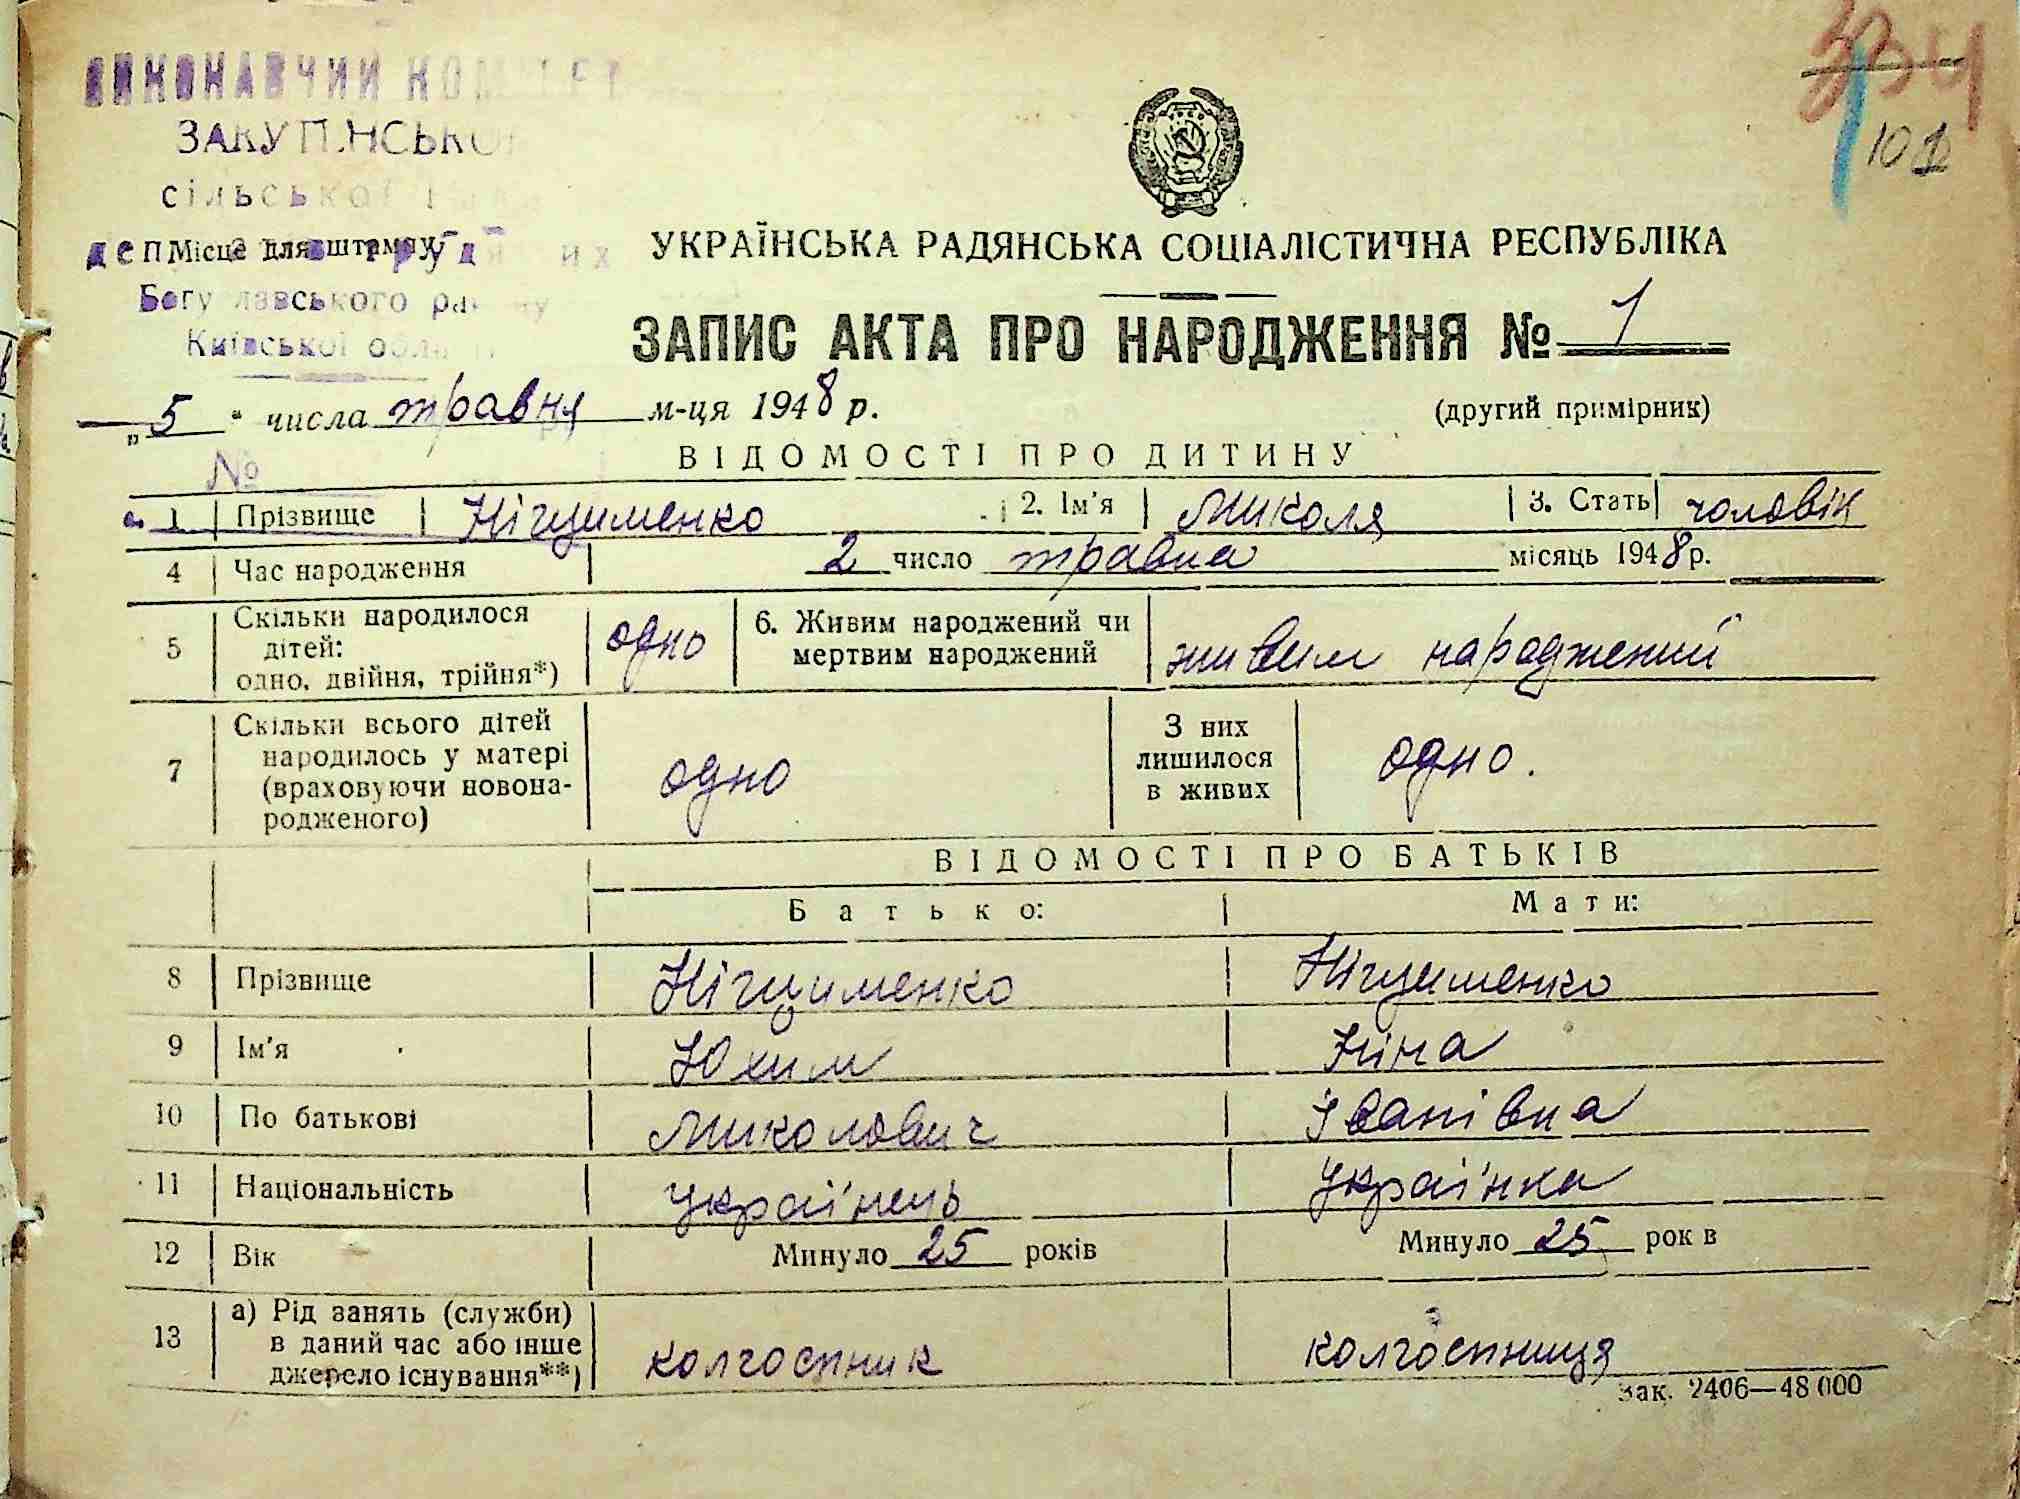 ВИКОНАВЧИЙ КОМІТЕТ
сільської
Місце для штампу
Богуславського району
Київської області
334
10
УКРАЇНСЬКА РАДЯНСЬКА СОЦІАЛІСТИЧНА РЕСПУБЛІКА
ЗАПИС АКТА ПРО НАРОДЖЕННЯ № 1
„5“ числа травня м-ця 1948 р.
(другий примірник)
№
ВІДОМОСТІ ПРО ДИТИНУ
1 Прізвище Нігрименко 2. Ім'я Миколя 3. Стать чоловік
4 Час народження 2 число травня місяць 1948 р.
5 Скільки народилося дітей: одно, двійня, трійня*) одно 6. Живим народжений чи мертвим народжений живим народжений
7 Скільки всього дітей народилось у матері (враховуючи новонародженого) одно З них лишилося в живих одно.
ВІДОМОСТІ ПРО БАТЬКІВ
Батько: Мати:
8 Прізвище
9 Ім'я Юхим Ніна
10 По батькові Миколович Іванівна
11 Національність українець українка
12 Вік Минуло 25 років Минуло 25 рок в
13 а) Рід занять (служби) в даний час або інше джерело існування**) колгоспник колгоспниця
Зак. 2406—48 000